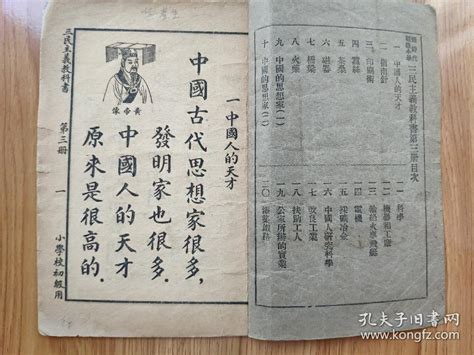 三民主義教科書第三册目次
一 中國人的天才
二 指南針
三 印刷術
四 蠶絲
五 茶葉
六 磁器
七 橋樑
八 火藥
九 中國的思想家(一)
十 中國的思想家(二)
一一 科學
一二 機器和工廠
一三 輪船火車飛艇
一四 電機
一五 採礦冶金
一六 中國人研究科學
一七 改良工業
一八 扶助工人
一九 公家所辦的實業
一 中國人的天才
中國古代思想家很多，
發明家也很多．
中國人的天才
原來是很高的．
黃帝像
三民主義教科書
第三册
一
小學校初級用
孔夫子旧书网
kongfz.com